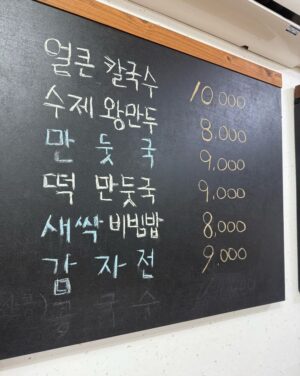 얼큰 칼국수 10,000
수제 왕만두 8,000
만둣국 9,000
떡 만둣국 9,000
새싹 비빔밥 8,000
감자전 9,000